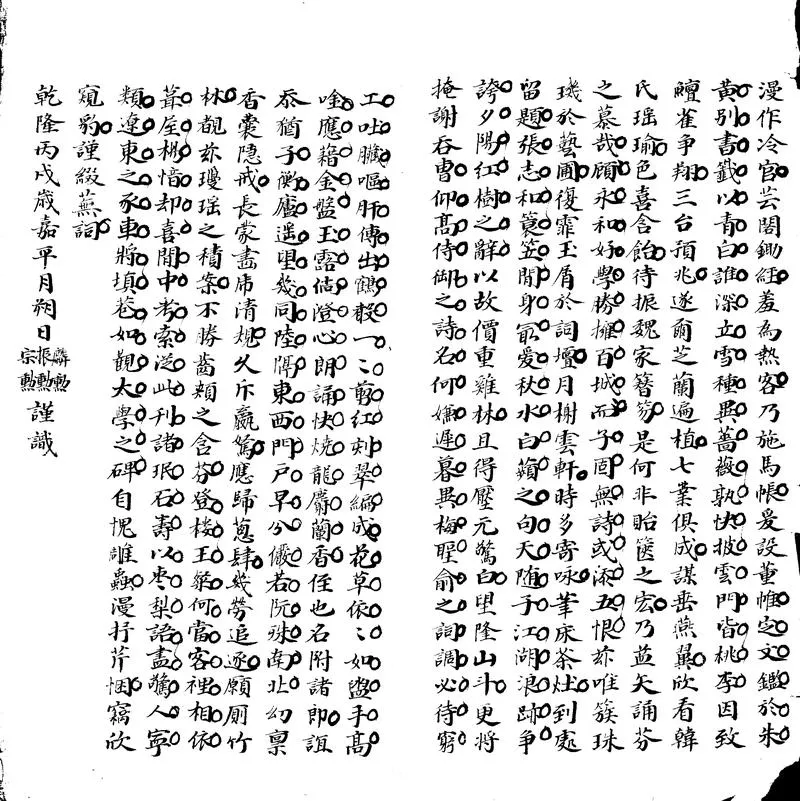 漫作冷官芸閣鋤經羞為熱客乃施馬帳爰設董帷定文鑑於朱
黃別書籤以青白誰深立雪種異薔薇孰快披雲門皆桃李因致
鱣雀爭翔三台預兆遂爾芝蘭遍植七業俱成謀垂燕翼欣看韓
氏瑶瑜色喜含飴待振魏家簪笏是何非貽篋之宏乃益矢誦芬
之慕哉顧永和好學勝擁百城而子固無詩或添五恨茲唯簇珠
璣於藝圃復霏玉屑於詞壇月榭雲軒時多寄咏筆床茶灶到處
留題張志和簑笠閒身最愛秋水白蘋之句天随子江湖浪跡爭
誇夕陽紅樹之辭以故價重雞林且得壓元驚白望隆山斗更將
掩謝吞曹仰高侍御之詩名何嫌遲暮異梅聖俞之詞調必待窮
工吐臟嘔肝傳出鶴骰一〻剪紅刻翠編成花草依〻如盥手高
唫應籍金盤玉露倘澄心朗誦快燒龍麝蘭香侄也名附諸郎誼
忝猶子衡廬遥望幾同陸隔東西門戶早分儼若阮殊南北幻稟
香囊隱戒長蒙畫荻清規久斥羸駑應歸蔥肆幾勞追逐願厠竹
林覩茲瓊瑶之積案不勝齒頰之含芬登楼王粲何當客裡相依
葺屋桃愔却喜閒中考索泛此刊諸珉石壽以枣梨語盡驚人寧
類遼東之豕車將填巷如觀太學之碑自愧雕蟲漫抒芹悃竊欣
窺豹謹綴蕪詞
乾隆丙戌歲嘉平月朔日
麟勳
振勳
宗勳
謹識